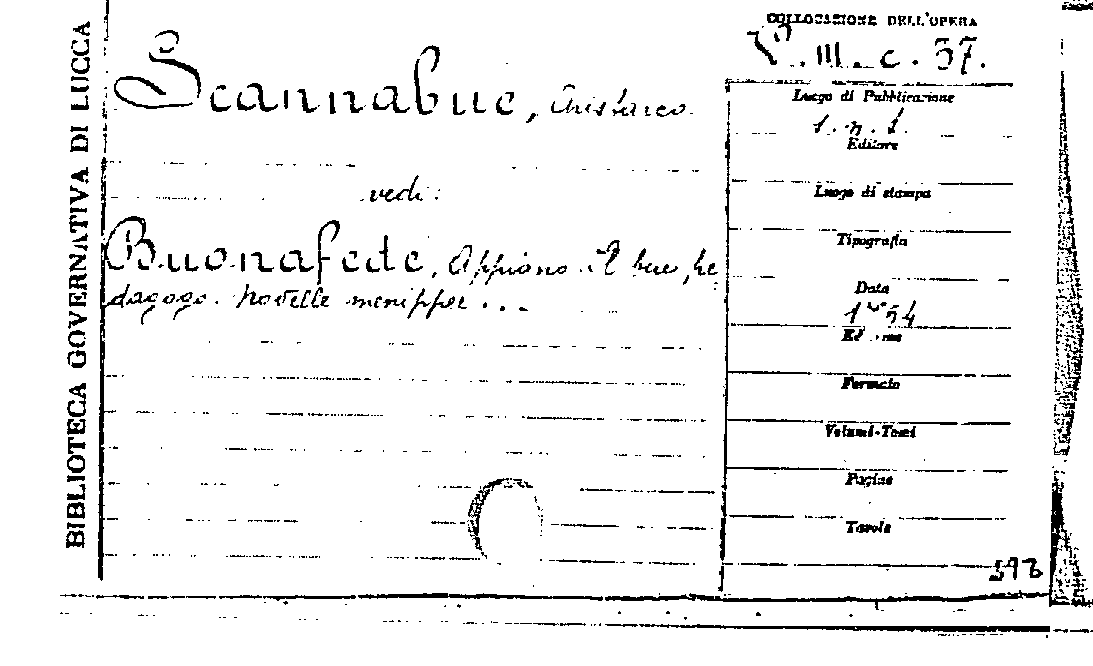 BIBLIOTECA GOVERNATIVA DI LUCCA
Scannabue, Aristarco
vedi:
Buonafede, Appiano. Il bue, pe
dagogo. Novelle menippee...
COLLOCAZIONE DELL'OPERA
III. c. 37.
Luogo di Pubblicazione
s. n. l.
Editore
Luogo di stampa
Tipografia
Data
Formato
Volumi-Tomi
Pagine
Tavole